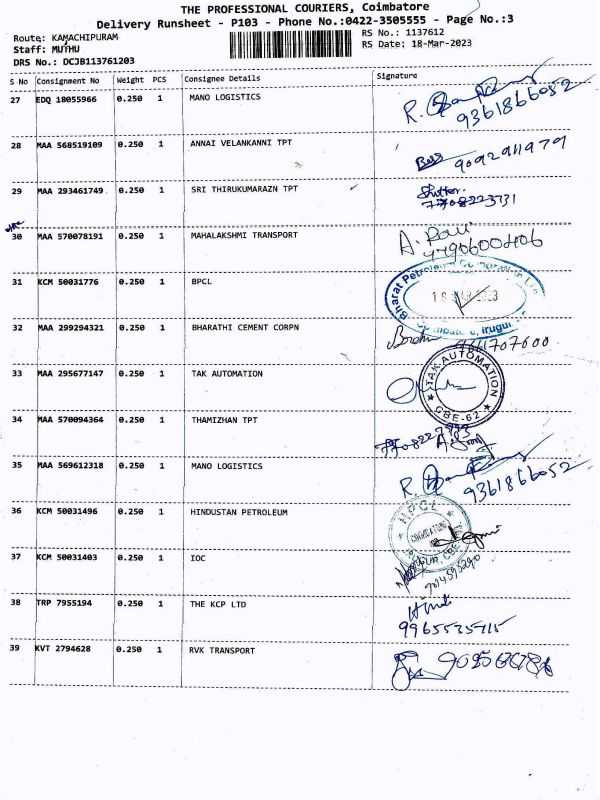 THE PROFESSIONAL COURIERS, Coimbatore
Delivery Runsheet - P103 - Phone No.:0422-3505555 - Page No.:3
Route: KAMACHIPURAM
RS No.: 1137612
Staff: MUTHU
RS Date: 18-Mar-2023
DRS No.: DCJB113761203
S No Consignment No Weight PCS Consignee Details Signature
27 EDQ 18055966 0.250 1 MANO LOGISTICS
9361866052
28 MAA 568519109 0.250 1 ANNAI VELANKANNI TPT
9092911979
29 MAA 293461749 0.250 1 SRI THIRUKUMARAZN TPT
30 MAA 570078191 0.250 1 MAHALAKSHMI TRANSPORT A. Ravi
31 KCM 50031776 0.250 1 BPCL
Bharat Petroleum Corporation Ltd
18 MAR 2023
32 MAA 299294321 0.250 1 BHARATHI CEMENT CORPN
33 MAA 295677147 0.250 1 TAK AUTOMATION
TAK AUTOMATION
CBE-62
34 MAA 570094364 0.250 1 THAMIZHAN TPT
35 MAA 569612318 0.250 1 MANO LOGISTICS
9361866052
36 KCM 50031496 0.250 1 HINDUSTAN PETROLEUM
HPCL
37 KCM 50031403 0.250 1 IOC
38 TRP 7955194 0.250 1 THE KCP LTD
39 KVT 2794628 0.250 1 RVK TRANSPORT